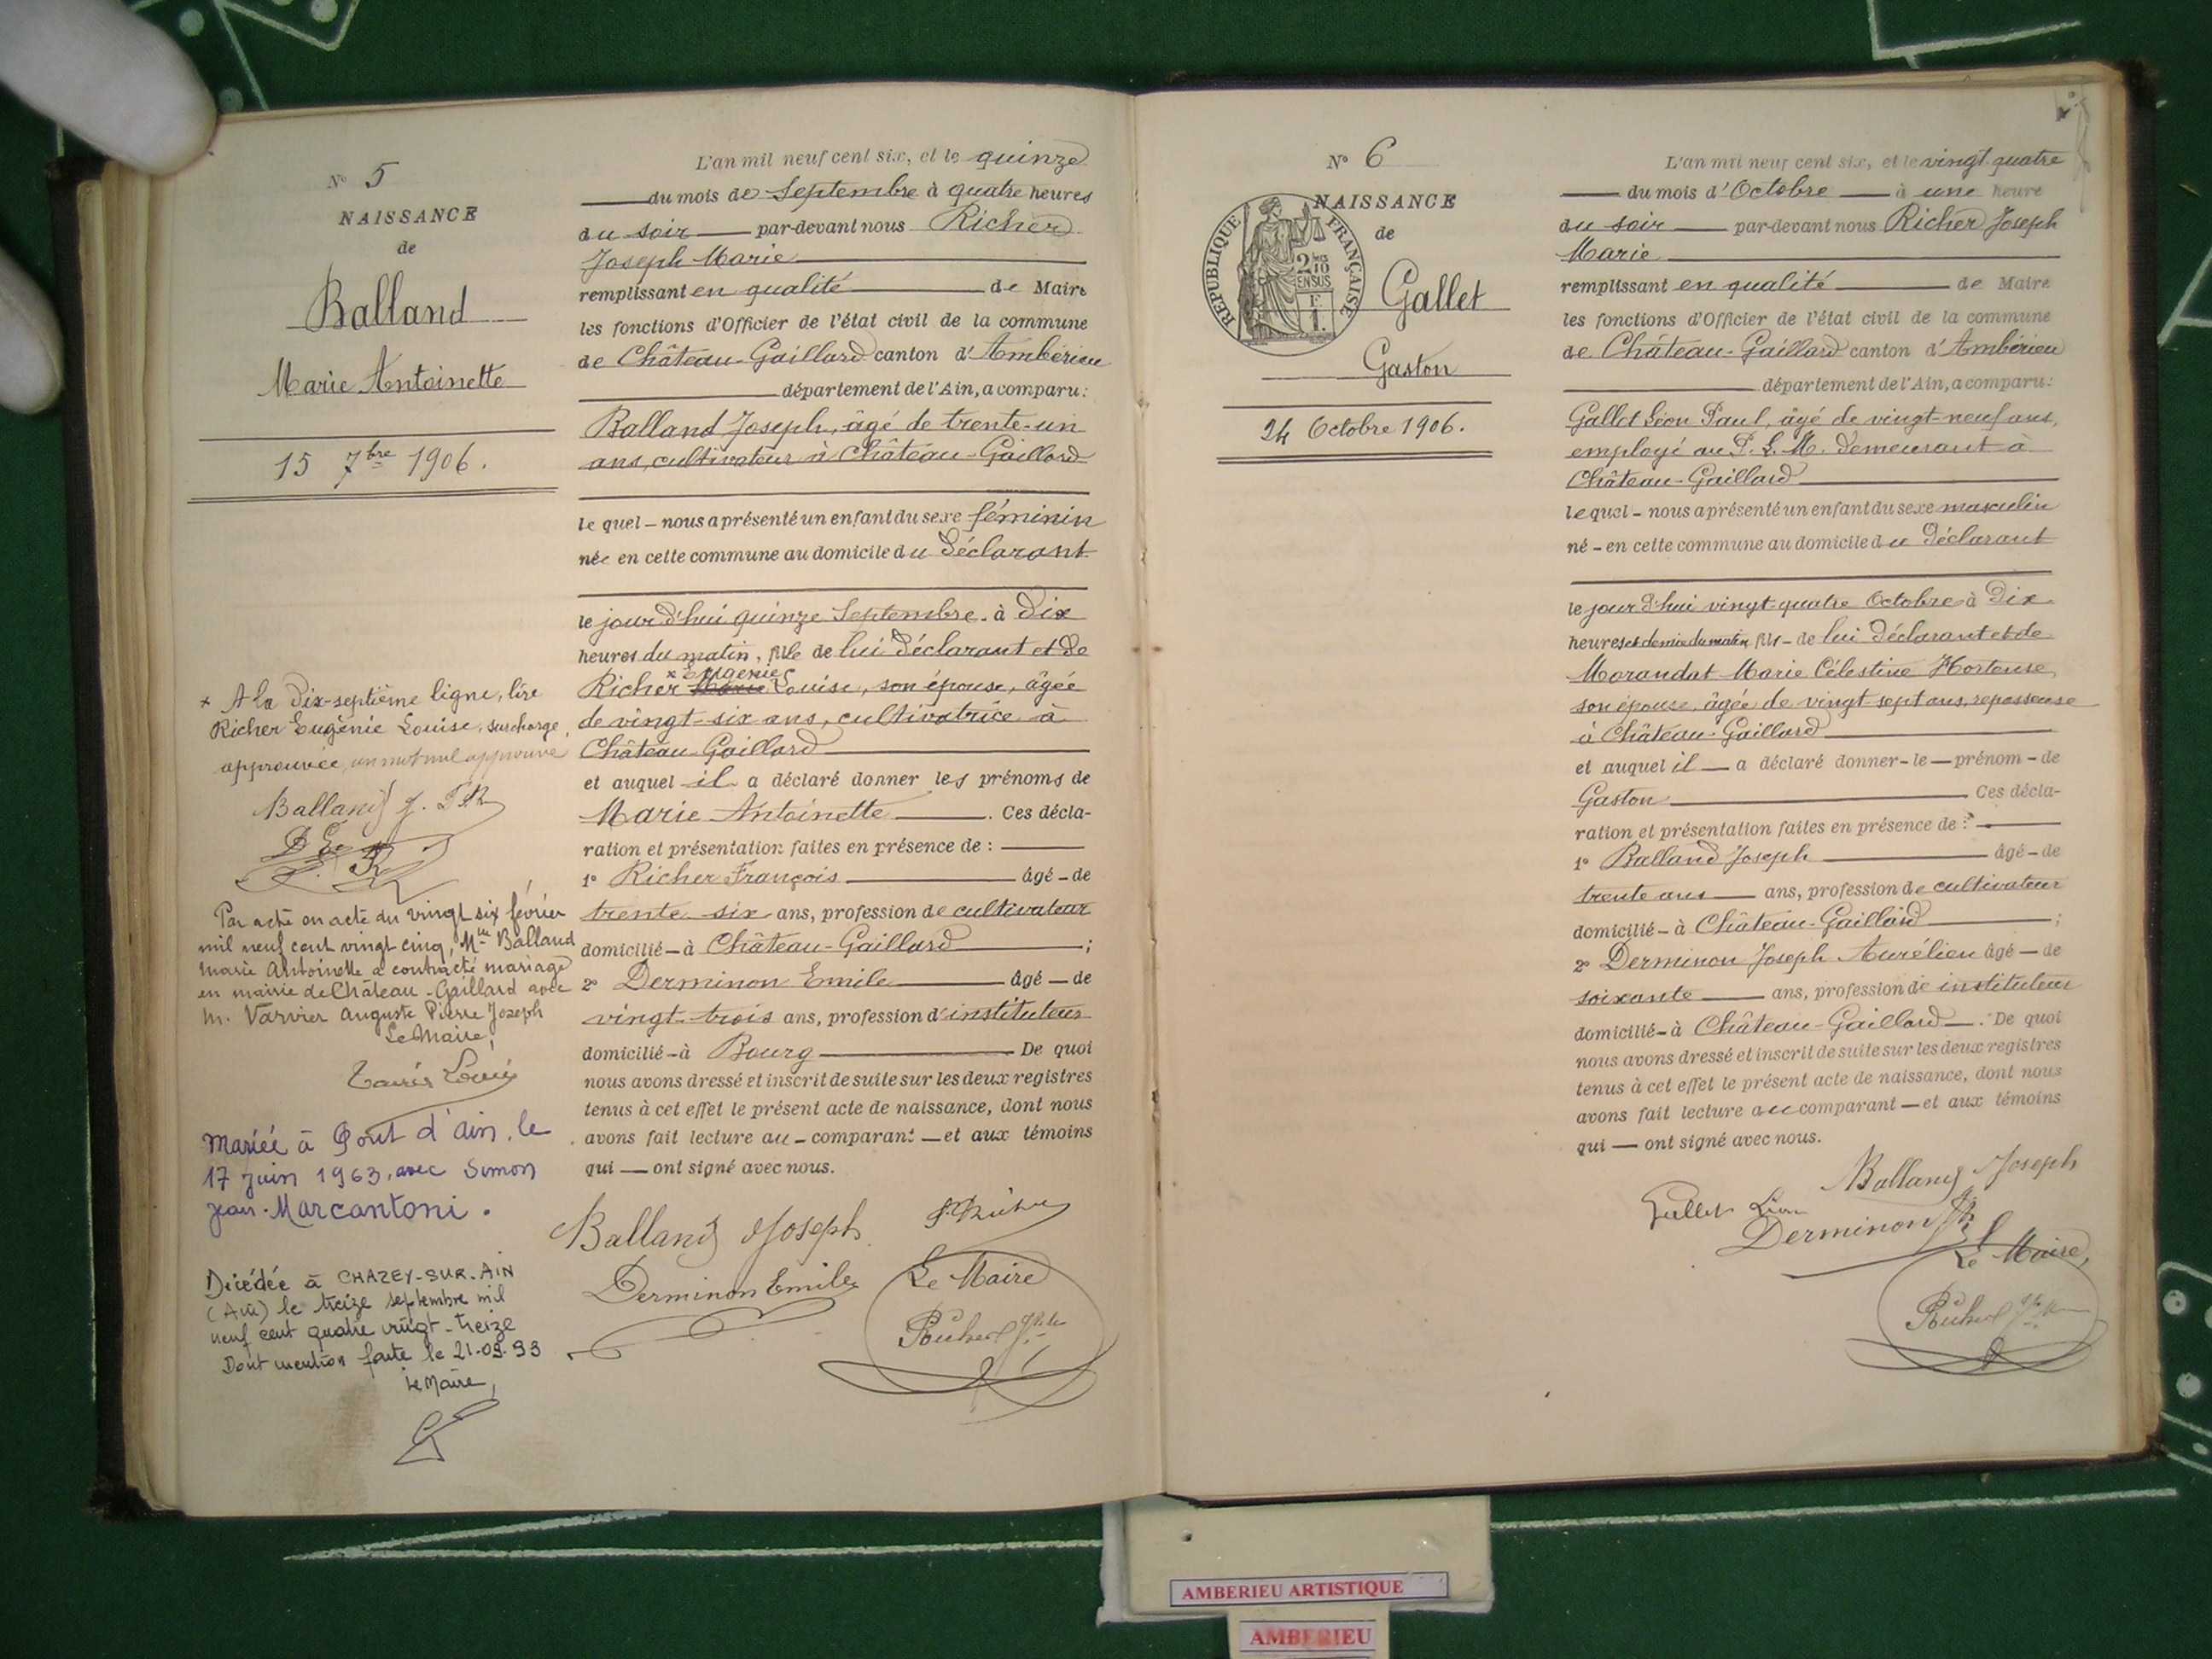 N° 5
NAISSANCE
de
Balland
Marie Antoinette
15 7bre 1906.
* A la Dix-septième ligne, lire
Richer Eugénie Louise, surcharge
approuvée, un mot nul approuvé
Balland J.
Par acte en acte du vingt six février
mil neuf cent vingt cinq, Mlle Balland
Marie Antoinette a contracté mariage
en mairie de Château-Gaillard avec
M. Varvier Auguste Pierre Joseph
Le Maire,
Mariée à Pont d'Ain, le
17 Juin 1963, avec Simon
Jean Marcantoni.
Décédée à CHAZEY-SUR-AIN
(Ain) le treize septembre mil
neuf cent quatre vingt-treize
Dont mention faite le 21-09-93
Le Maire,
L'an mil neuf cent six, et le quinze
du mois de Septembre à quatre heures
du soir par-devant nous Richer
Joseph Marie
remplissant en qualité de Maire
les fonctions d'Officier de l'état civil de la commune
de Château-Gaillard canton d'Ambérieu
département de l'Ain, a comparu:
Balland Joseph, âgé de trente-un
ans, cultivateur à Château-Gaillard
le quel - nous a présenté un enfant du sexe féminin
née en cette commune au domicile du déclarant
le jour d'hui quinze Septembre à Dix
heures du matin, fille de lui déclarant et de
* Eugénie
Richer Marie Louise, son épouse, âgée
de vingt-six ans, cultivatrice à
Château-Gaillard
et auquel il a déclaré donner les prénoms de
Marie Antoinette. Ces décla-
ration et présentation faites en présence de :
1° Richer François âgé - de
trente six ans, profession de cultivateur
domicilié - à Château-Gaillard ;
2° Derminon Emile âgé — de
vingt-trois ans, profession d'instituteur
domicilié - à Bourg De quoi
nous avons dressé et inscrit de suite sur les deux registres
tenus à cet effet le présent acte de naissance, dont nous
avons fait lecture au - comparant — et aux témoins
qui — ont signé avec nous.
Balland Joseph F. Richer
Derminon Emile Le Maire
Richer
N° 6
NAISSANCE
de
RÉPUBLIQUE FRANÇAISE
2/10
EN SUS
F.
1.
Gallet
Gaston
24 Octobre 1906.
L'an mil neuf cent six, et le vingt quatre
du mois d'Octobre à une heure
du soir par-devant nous Richer Joseph
Marie
remplissant en qualité de Maire
les fonctions d'Officier de l'état civil de la commune
de Château-Gaillard canton d'Ambérieu
département de l'Ain, a comparu:
Gallet Léon Paul, âgé de vingt-neuf ans,
employé au P. L. M. demeurant à
Château-Gaillard
le quel - nous a présenté un enfant du sexe masculin
né - en cette commune au domicile du déclarant
le jour d'hui vingt-quatre Octobre à Dix
heures et demie du matin, fils - de lui déclarant et de
Morandat Marie Célestine Hortense,
son épouse, âgée de vingt-sept ans, repasseuse
à Château-Gaillard
et auquel il — a déclaré donner - le — prénom - de
Gaston Ces décla-
ration et présentation faites en présence de :
1° Balland Joseph âgé - de
trente ans ans, profession de cultivateur
domicilié - à Château-Gaillard ;
2° Derminon Joseph Aurélien âgé — de
soixante ans, profession de instituteur
domicilié - à Château-Gaillard. De quoi
nous avons dressé et inscrit de suite sur les deux registres
tenus à cet effet le présent acte de naissance, dont nous
avons fait lecture au comparant — et aux témoins
qui — ont signé avec nous.
Balland Joseph
Gallet Léon
Derminon
Le Maire,
Richer
AMBERIEU ARTISTIQUE
AMBERIEU